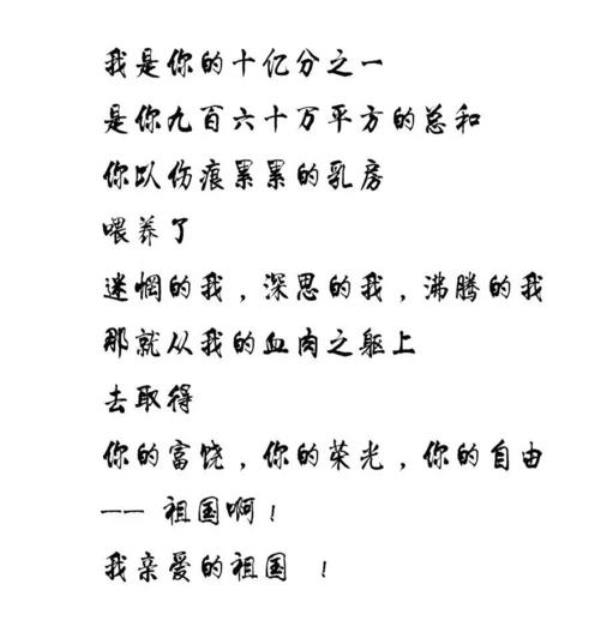 我是你的十亿分之一
是你九百六十万平方的总和
你以伤痕累累的乳房
喂养了
迷惘的我，深思的我，沸腾的我
那就从我的血肉之躯上
去取得
你的富饶，你的荣光，你的自由
—— 祖国啊！
我亲爱的祖国 ！